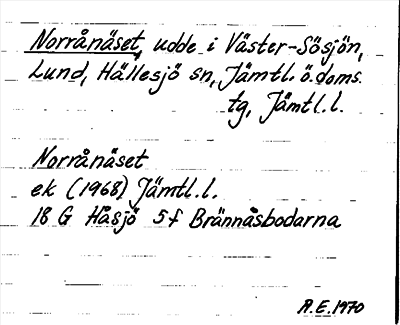 Norrånäset, udde i Väster-Sösjön,
Lund, Hällesjö sn, Jämtl. ö. doms.
tg, Jämtl.l.
Norrånäset
ek (1968) Jämtl.l.
18 G Håsjö 5f Brännåsbodarna
R.E.1970